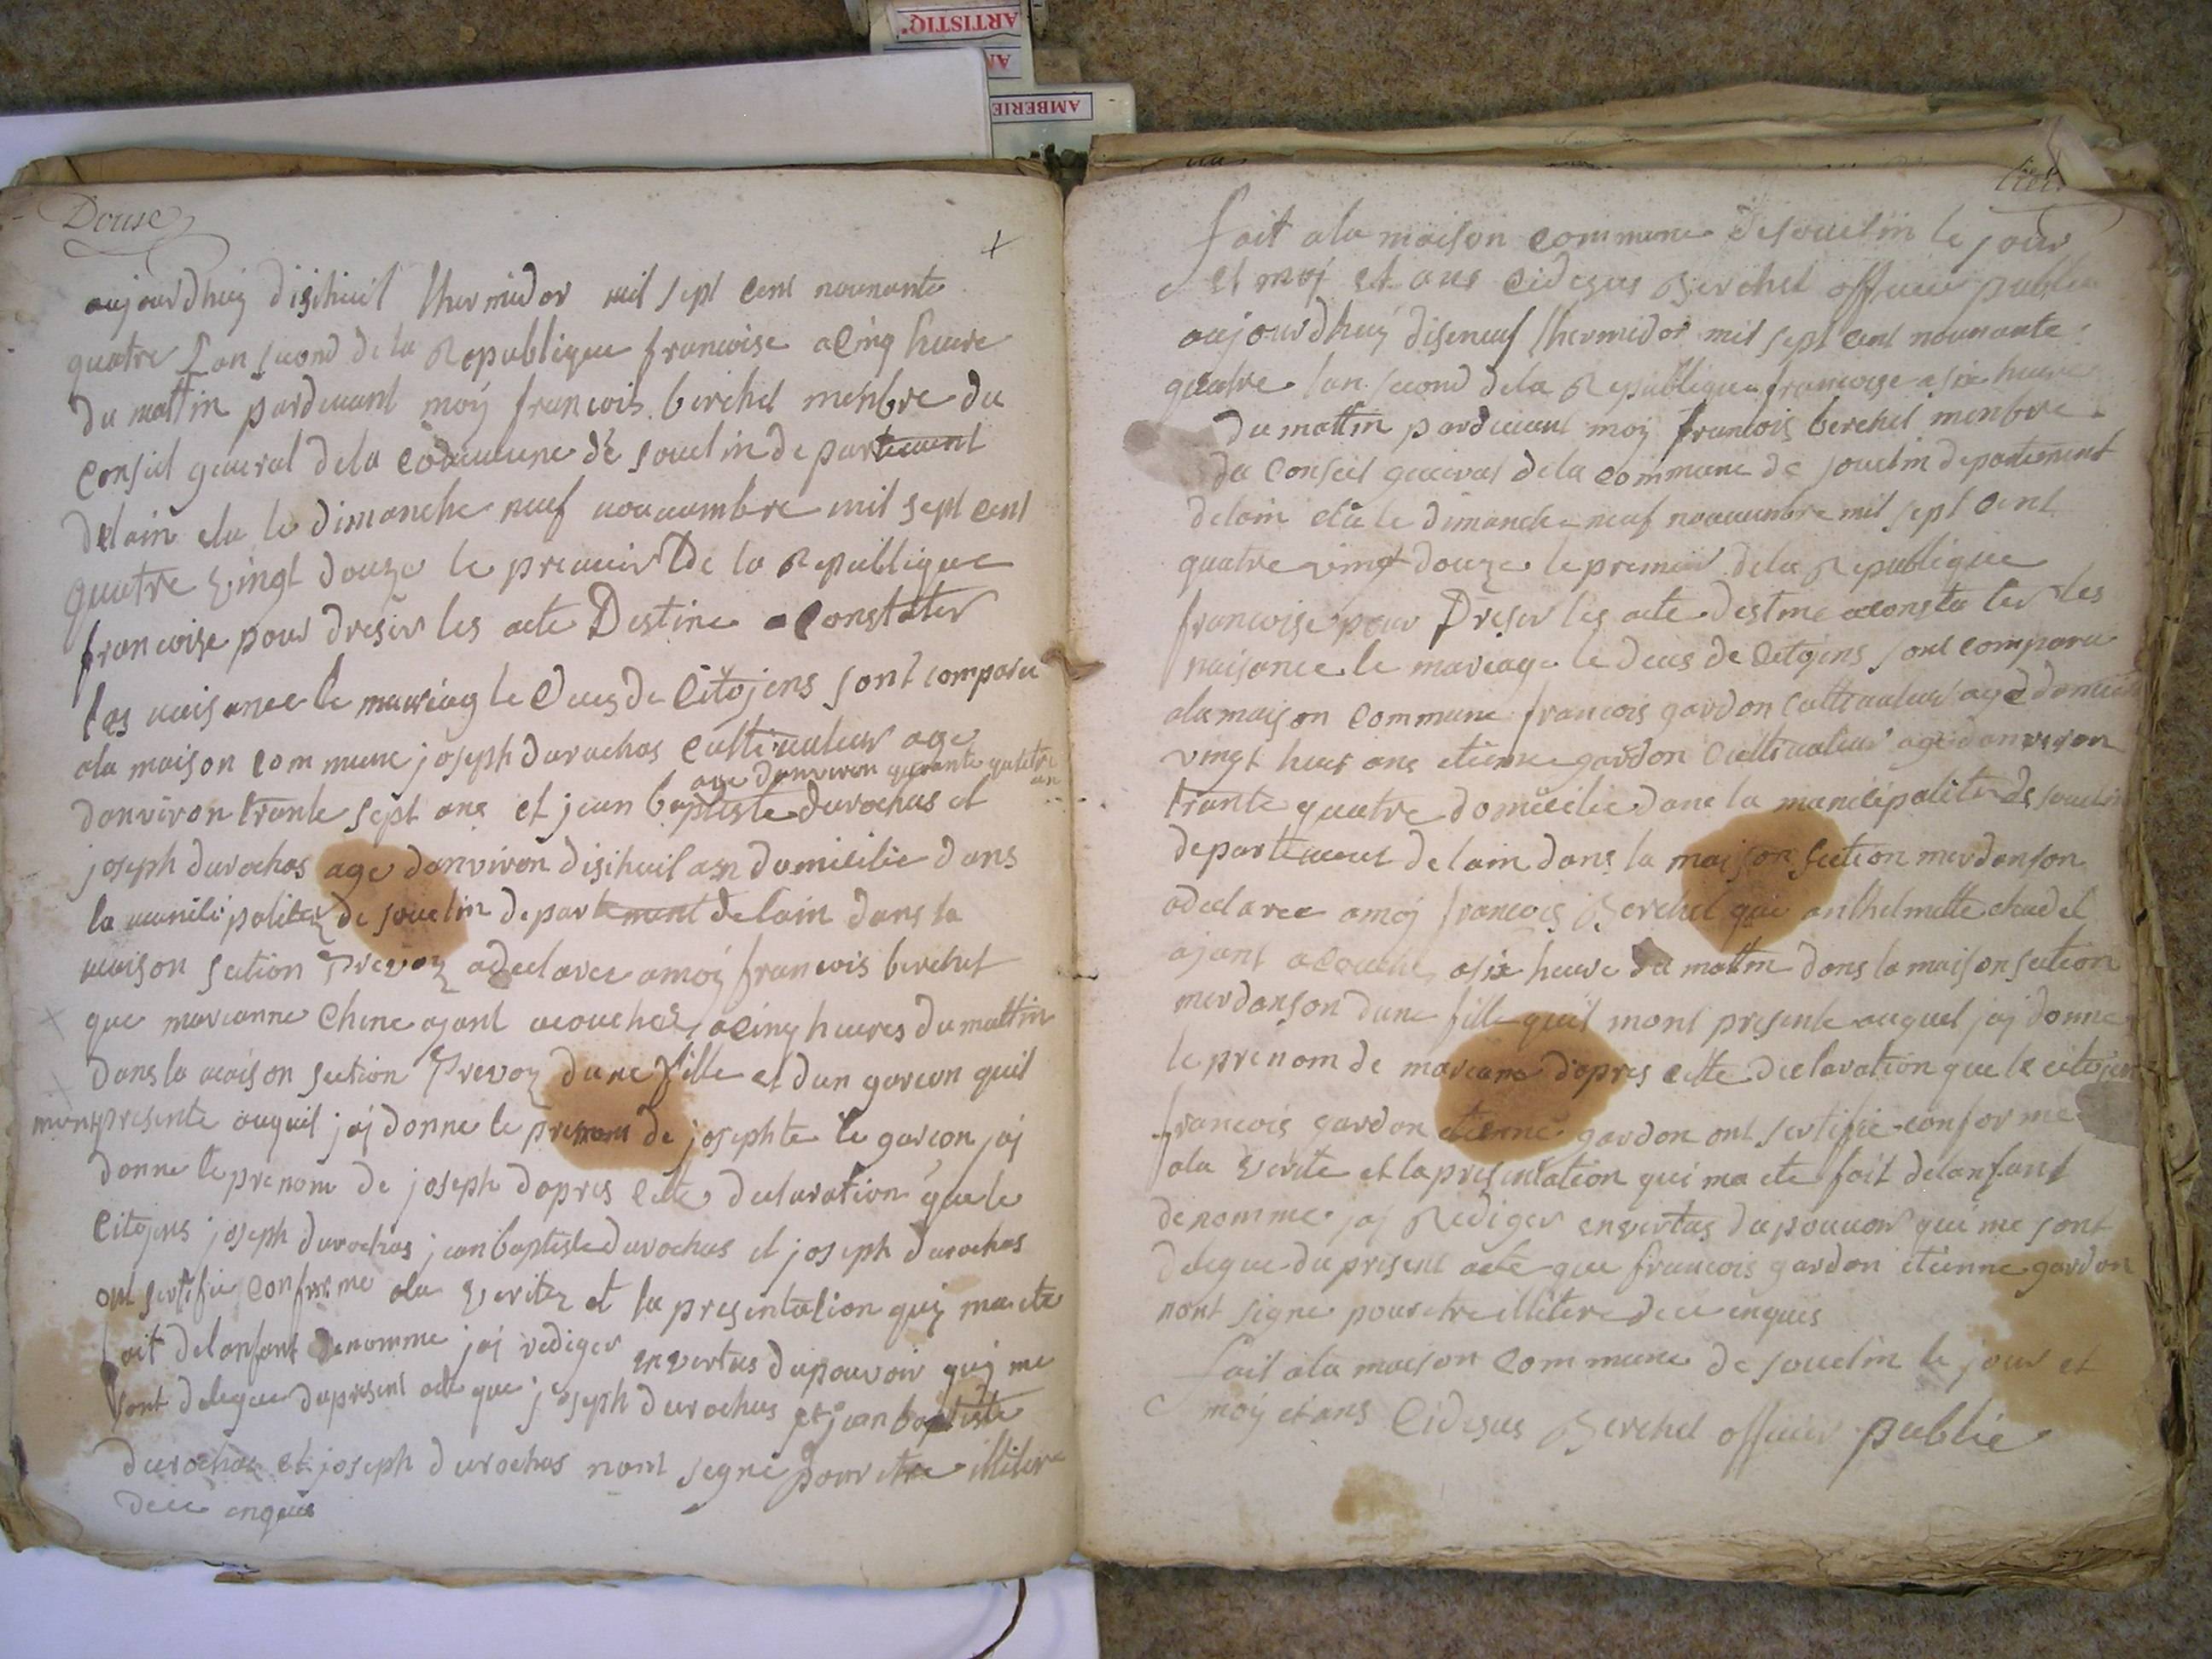 ARTISTIQ'
AMBERIE
Douse
aujourdhuy disihuit thermidor mil sept cent nounante
quatre Lan second de la Republique francoise a cinq heure
du mattin pardevant moÿ francois berchet menbre du
Conseil general dela Commune de souclin departement
delain elu le dimanche neuf nouuambre mil sept cent
quatre vingt douze le premier De la Republique
francoise pour dreser les acte Destine a Constater
les naisance le mariag le Deces de Citojens sont comparu
ala maison Commune joseph durochas Cultivateur age
age danviron quarante quatre
an
danviron trante sept ans et jean baptiste durochas et
joseph durochas age danviron disihuit an domicilie dans
la municipalitez de souclin departement de lain dans la
maison section Prevoz adeclarez amoÿ francois berchet
que marianne Chene ajant acouchez a cinq heures du mattin
dans la maison section Prevoz dune fille et dun garcon quil
mont presente auquil jaj donne le prenom de josephte le garcon jaj
donne le prenom de joseph dapres cette declaration que le
Citojens joseph durochas jean baptiste durochas et joseph durochas
ont sertifie conforme ala veritez et la presentation quÿ ma ete
fait delanfant denomme jaj rediger envertus dupouvoir quÿ me
sont delegue dupresent acte que joseph durochas et jean baptiste
durochas et joseph durochas nont segne pour etre illitere
dece enquis
fait ala maison commune desouclin le jour
et moj et ans cidesus Berchet officier public
aujourdhuÿ diseneuf thermidor mil sept cent nounante
quatre lan second dela Republique francoise a six heure
du mattin pardevant moÿ francois berchet menbre
du Conseil general dela commune de souclin departement
delain elu le dimanche neuf nouuambre mil sept cent
quatre vingt douze le premier dela Republique
francoise pour Dreser les acte destine aconstater les
naisance le mariage le deces de Citojens sont comparu
ala maison Commune francois gardon Cultivateur age danviron
vingt huit ans etienne gardon Cultivateur age danviron
trante quatre domicilie dans la municipalite de souclin
departement delain dans la maison section merdanson
adeclaree amoj francois Berchet que anthelmette chadel
ajant acouche asix heure du mattin dans la maison section
merdanson dune fille quil mont presente auquel jaj donne
le prenom de mariane dapres cette declaration que le citojen
francois gardon etienne gardon ont sertifie conforme
ala verite et lapresentation qui ma ete fait delanfant
denomme jaj Rediger envertus dupouvoir qui me sont
delegue dupresent acte que francois gardon etienne gardon
nont signe pour etre illitere dece enquis
fait ala maison Commune de souclin le jour et
moÿ et ans Cidesus Berchet officier public